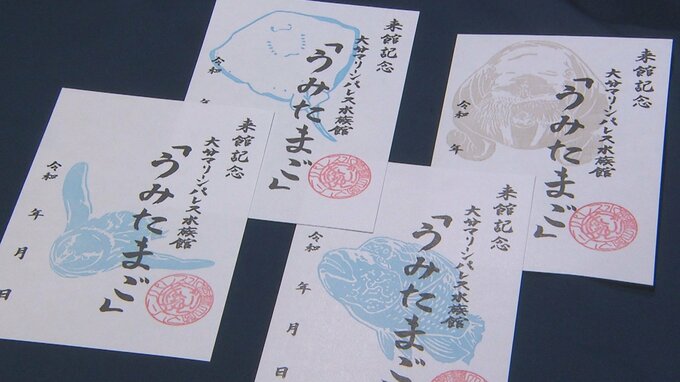 来館記念
大分マリーンパレス水族館
「うみたまご」
令和
来館記念
大分マリーンパレス水族館
「うみたまご」
令和 年
来館記念
大分マリーンパレス水族館
「うみたまご」
令和 年 月 日
来館記念
大分マリーンパレス水族館
「うみたまご」
令和 年 月 日